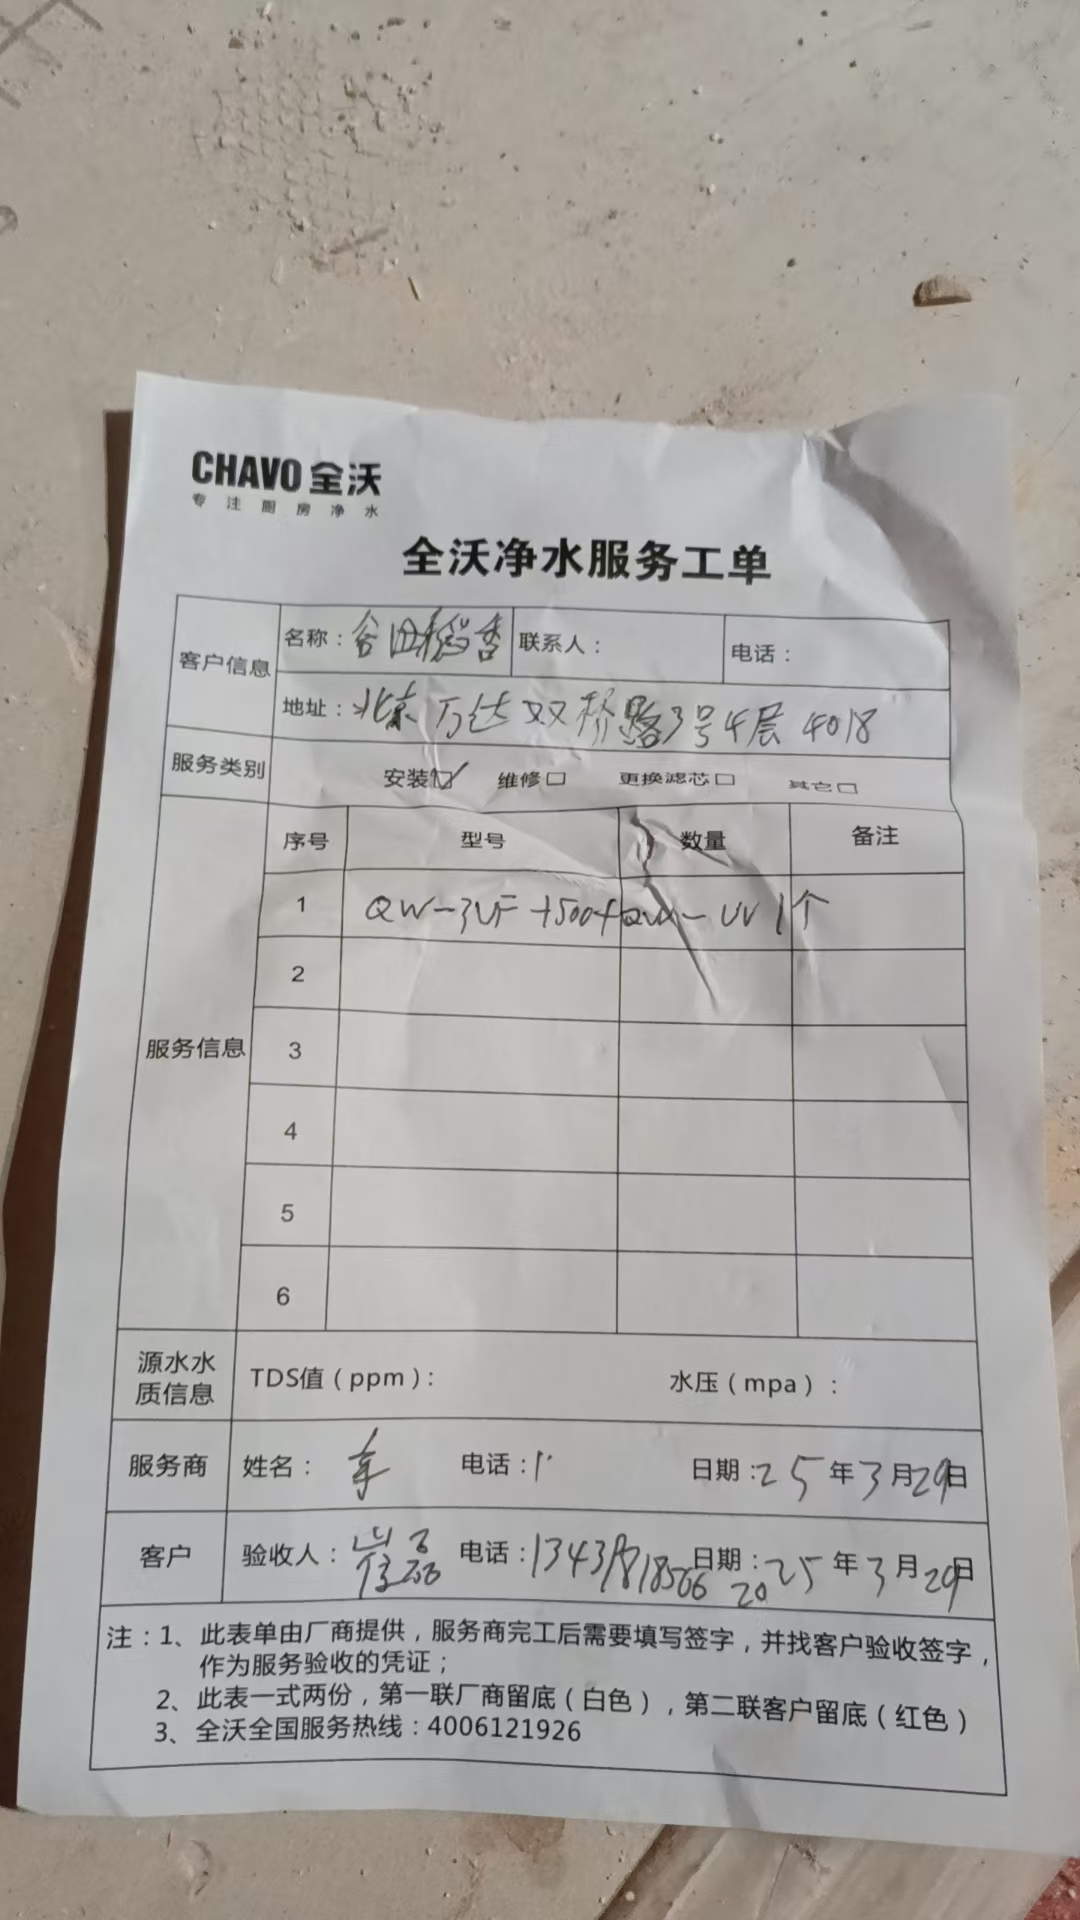 CHAVO 全沃
专注厨房净水
全沃净水服务工单
客户信息 名称：谷田稻香 联系人： 电话：
地址：北京万达双桥路3号4层 4018
服务类别 安装☑ 维修□ 更换滤芯□ 其它□
服务信息 序号 型号 数量 备注
1 QW-3UF +500+QW-UV 1个
2
3
4
5
6
源水水质信息 TDS值（ppm）： 水压（mpa）：
服务商 姓名： 电话： 日期：25年3月29日
客户 验收人： 电话： 日期：2025年3月29日
注：1、此表单由厂商提供，服务商完工后需要填写签字，并找客户验收签字，
作为服务验收的凭证；
2、此表一式两份，第一联厂商留底（白色），第二联客户留底（红色）
3、全沃全国服务热线：4006121926